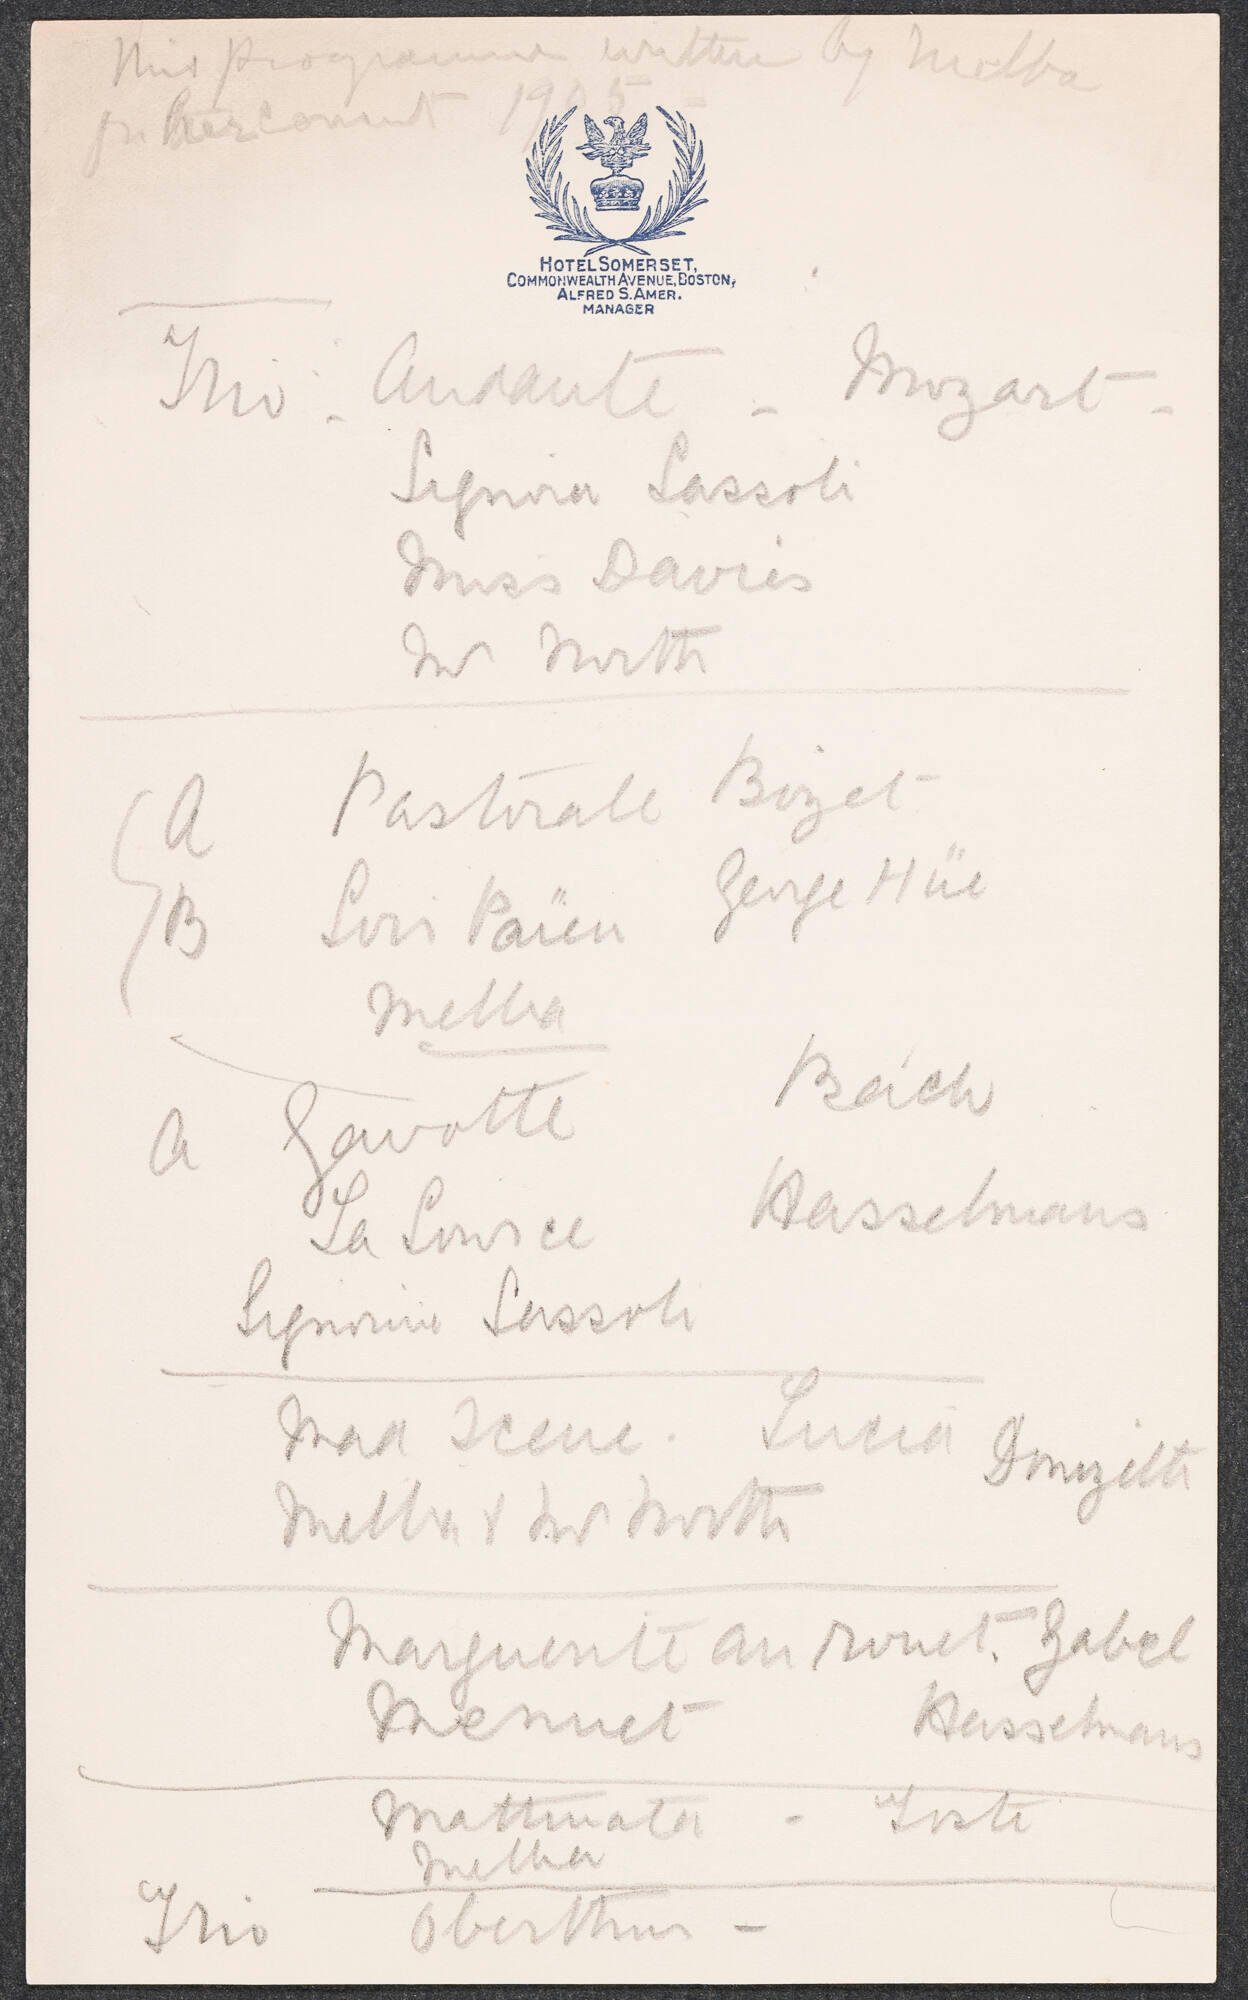 This programme written by Melba
for her concert 1905 -
HOTEL SOMERSET,
COMMONWEALTH AVENUE, BOSTON,
ALFRED S. AMER.
MANAGER
Trio: - Andante - Mozart -
Signora Sassoli
Miss Davies
Mr North
A Pastorale Bizet
B Soir Paien George Hüe
Melba
A Gavotte Bach
La Source Hasselmans
Signorina Sassoli
Mad Scene. Lucia Donizetti
Melba & Mr North
Marguerite au rouet. Zabel
Menuet Hasselmans
Mattinata - Tosti
Melba
Trio Oberthur -